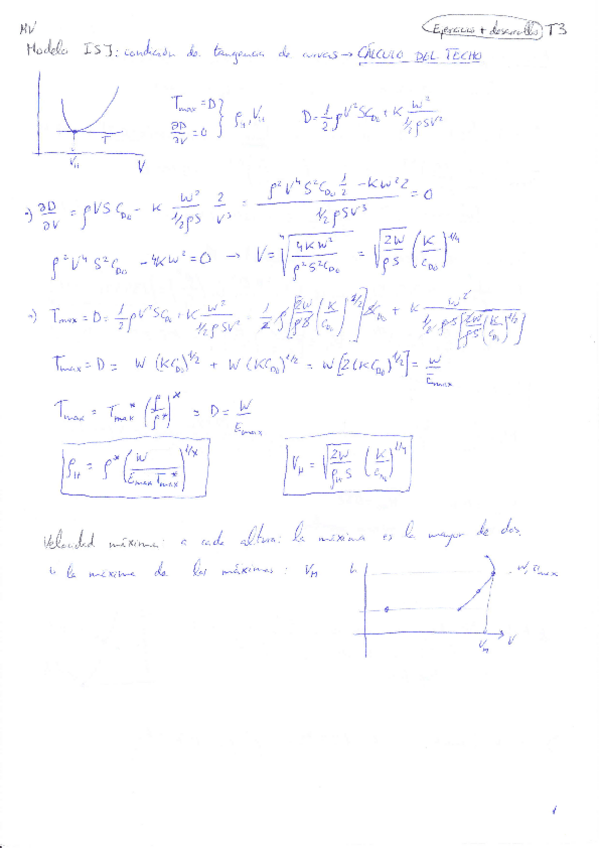 MV
Ejercicio + desarrollo T3
Modelo ISJ: condición de tangencia de curvas → CÁLCULO DEL TECHO
T_max = D
∂D/∂V = 0 } ρ_H, V_H
D = 1/2 ρV²SC_D0 + K W²/(1/2 ρSV²)
T
V_H
V
→) ∂D/∂V = ρVSC_D0 - K W²/(1/2 ρS) 2/V³ = (ρ²V⁴S²C_D0 1/2 - KW²2)/(1/2 ρSV³) = 0
ρ²V⁴S²C_D0 - 4KW² = 0 → V = ⁴√(4KW²/(ρ²S²C_D0)) = √(2W/(ρS)) (K/C_D0)^1/4
→) T_max = D = 1/2 ρV²SC_D0 + K W²/(1/2 ρSV²) = 1/2 ρ[2W/(ρS) (K/C_D0)^1/2] SC_D0 + K W²/(1/2 ρS[2W/(ρS) (K/C_D0)^1/2])
T_max = D = W (KC_D0)^1/2 + W (KC_D0)^1/2 = W[2(KC_D0)^1/2] = W/E_max
T_max = T_max* (ρ/ρ*)^x = D = W/E_max
ρ_H = ρ* (W/(E_max T_max*))^1/x
V_H = √(2W/(ρ_H S)) (K/C_D0)^1/4
Velocidad máxima: a cada altura: la máxima es la mayor de dos.
↳ la máxima de las máximas: V_M
h
V_M
V